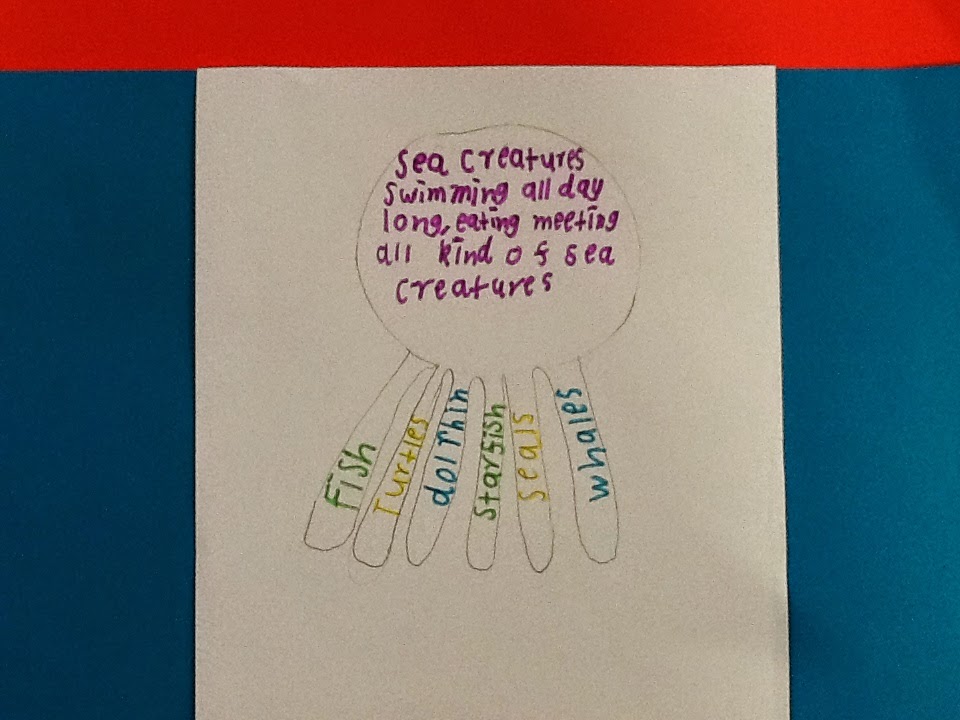 sea creatures
swimming all day
long, eating meeting
all kind of sea
creatures
Fish
Turtles
dolphin
starfish
seals
whales